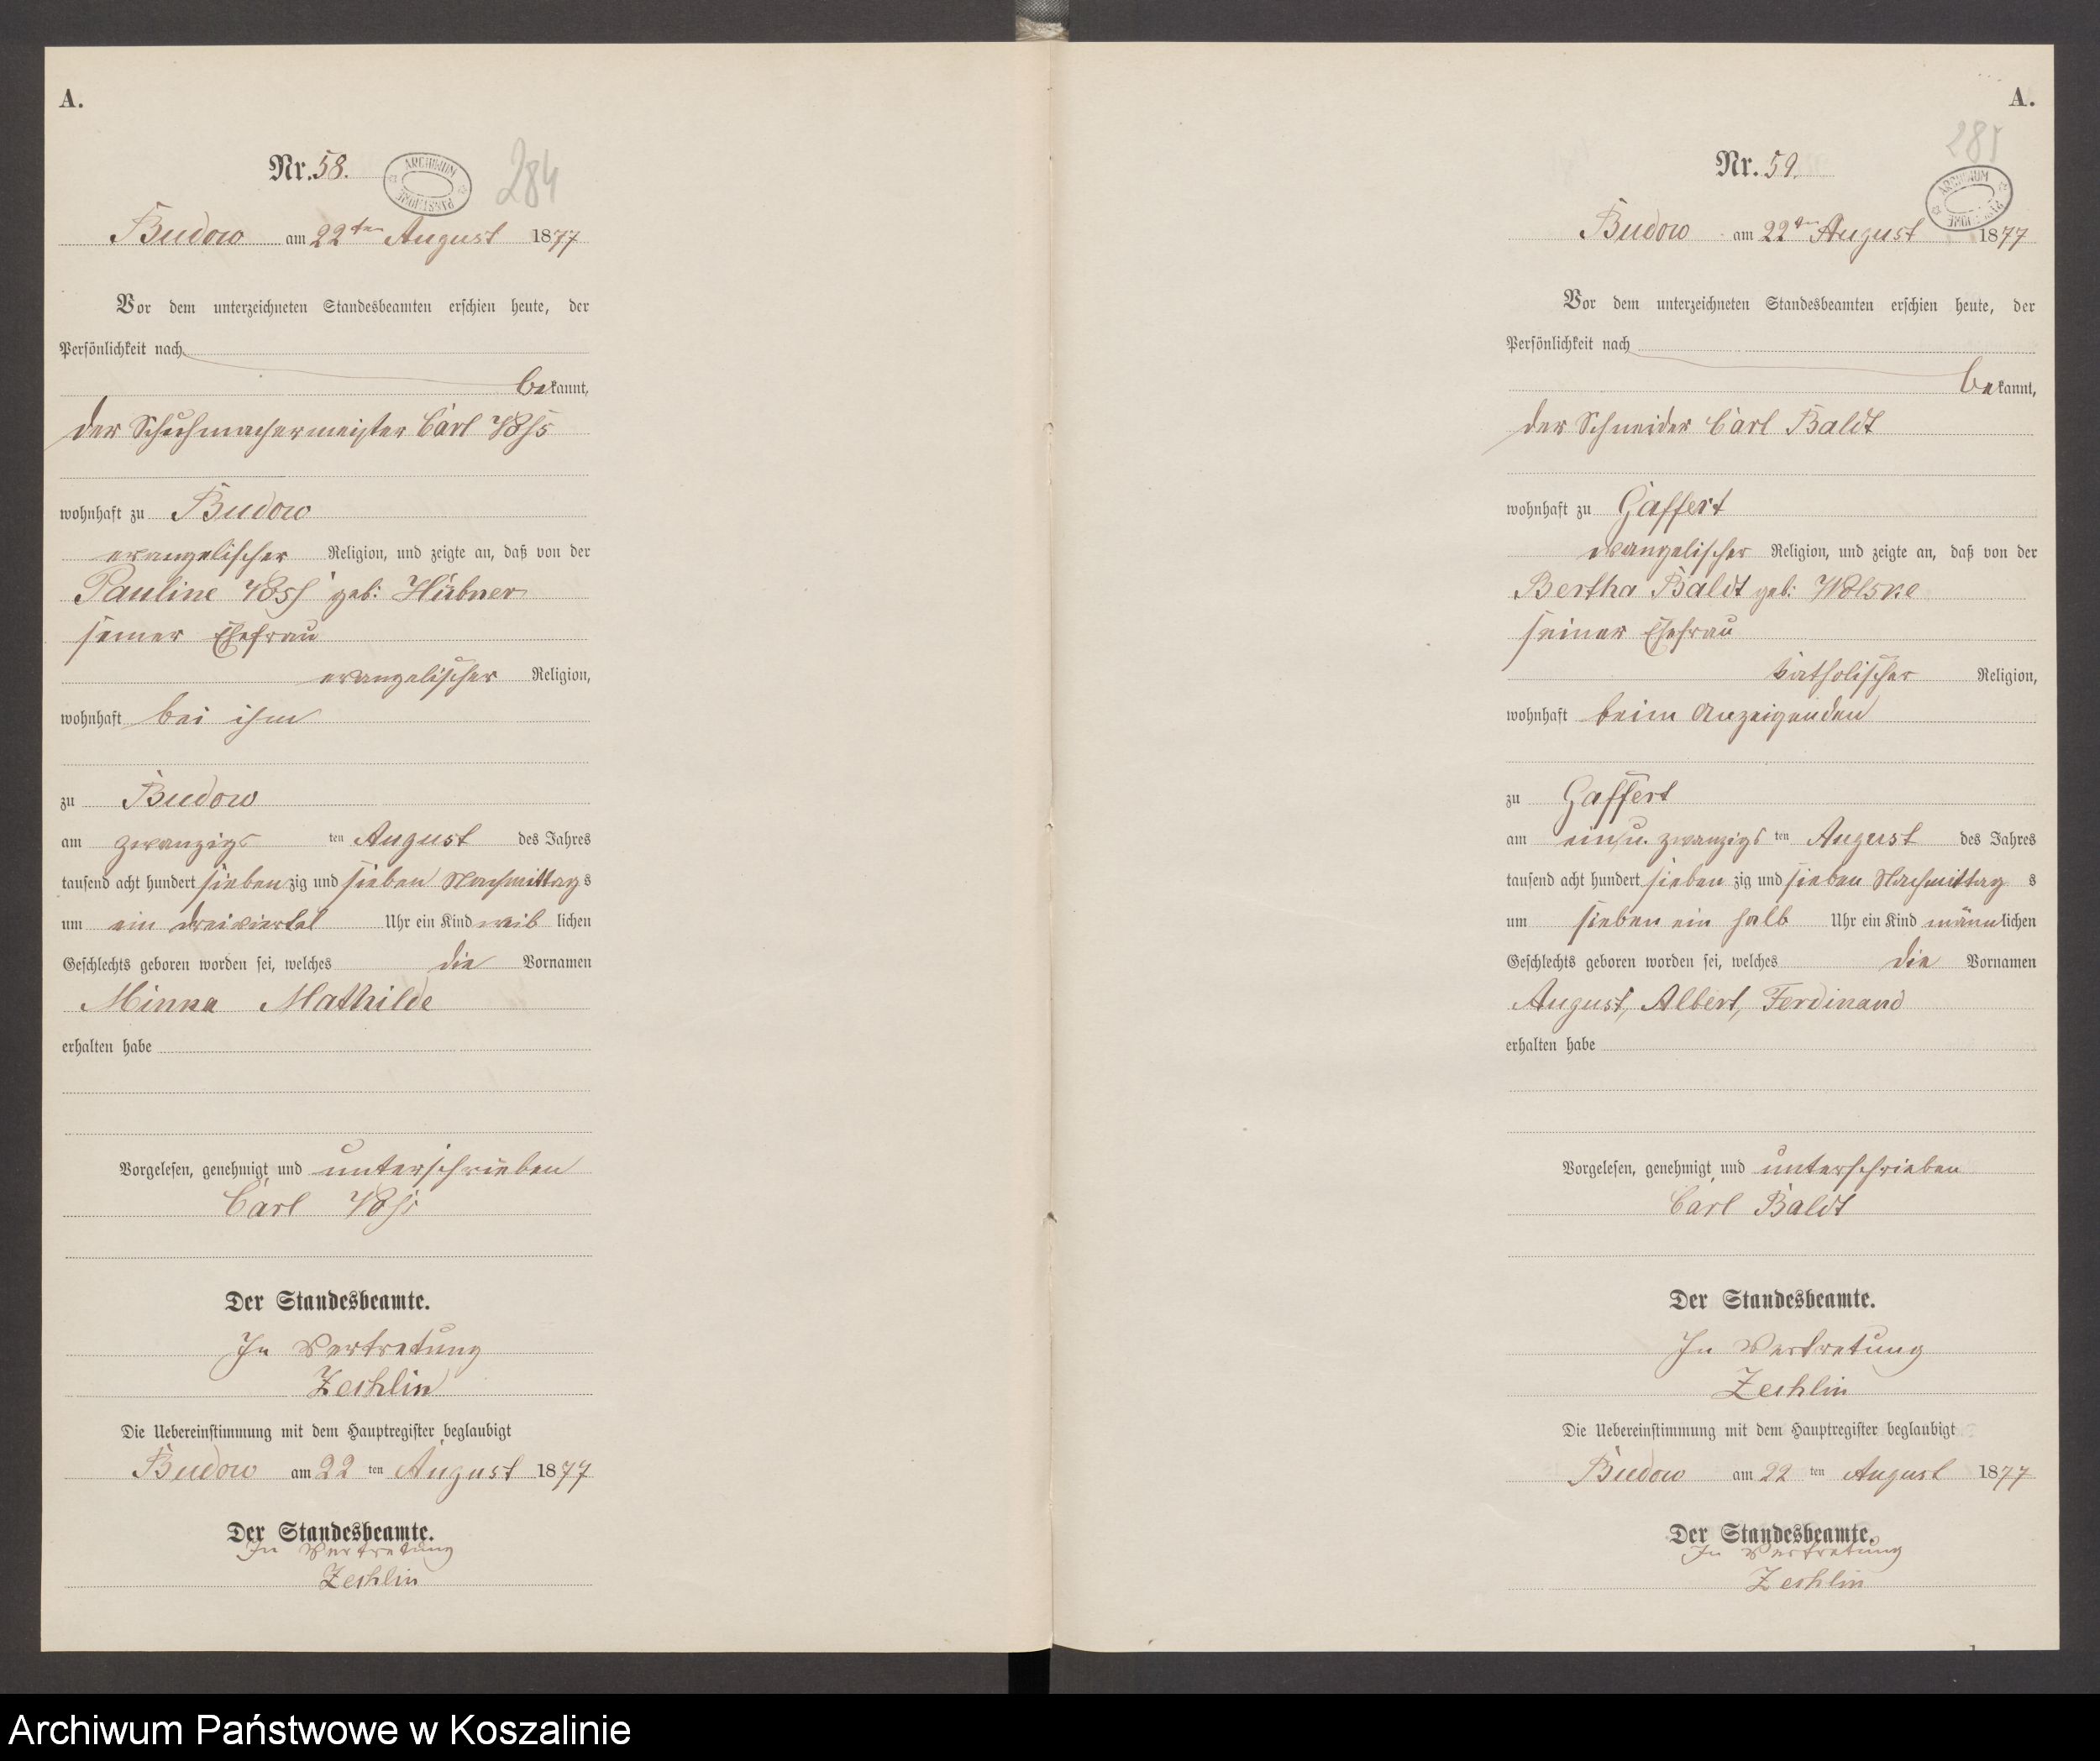 A.
Nr. 58.
284
ARCHIWUM PAŃSTWOWE
Budow am 22ten August 1877
Vor dem unterzeichneten Standesbeamten erschien heute, der
Persönlichkeit nach
bekannt,
der Schuhmachermeister Carl
wohnhaft zu Budow
evangelischer Religion, und zeigte an, daß von der
Pauline geb: Hübner
seiner Ehefrau
evangelischer Religion,
wohnhaft bei ihm
zu Budow
am zwanzigsten August des Jahres
tausend acht hundert siebenzig und sieben Nachmittags
um ein dreiviertel Uhr ein Kind weiblichen
Geschlechts geboren worden sei, welches die Vornamen
Minna Mathilde
erhalten habe
Vorgelesen, genehmigt und unterschrieben
Carl
Der Standesbeamte.
In Vertretung
Zechlin
Die Uebereinstimmung mit dem Hauptregister beglaubigt
Budow am 22ten August 1877
Der Standesbeamte.
In Vertretung
Zechlin
A.
285
Nr. 59.
ARCHIWUM PAŃSTWOWE
Budow am 22ten August 1877
Vor dem unterzeichneten Standesbeamten erschien heute, der
Persönlichkeit nach
bekannt,
der Schneider Carl Baldt
wohnhaft zu Gaffert
evangelischer Religion, und zeigte an, daß von der
Bertha Baldt geb:
seiner Ehefrau
katholischer Religion,
wohnhaft beim Anzeigenden
zu Gaffert
am ein u. zwanzigsten August des Jahres
tausend acht hundert siebenzig und sieben Nachmittags
um sieben ein halb Uhr ein Kind männlichen
Geschlechts geboren worden sei, welches die Vornamen
August, Albert, Ferdinand
erhalten habe
Vorgelesen, genehmigt und unterschrieben
Carl Baldt
Der Standesbeamte.
In Vertretung
Zechlin
Die Uebereinstimmung mit dem Hauptregister beglaubigt
Budow am 22ten August 1877
Der Standesbeamte.
In Vertretung
Zechlin
Archiwum Państwowe w Koszalinie